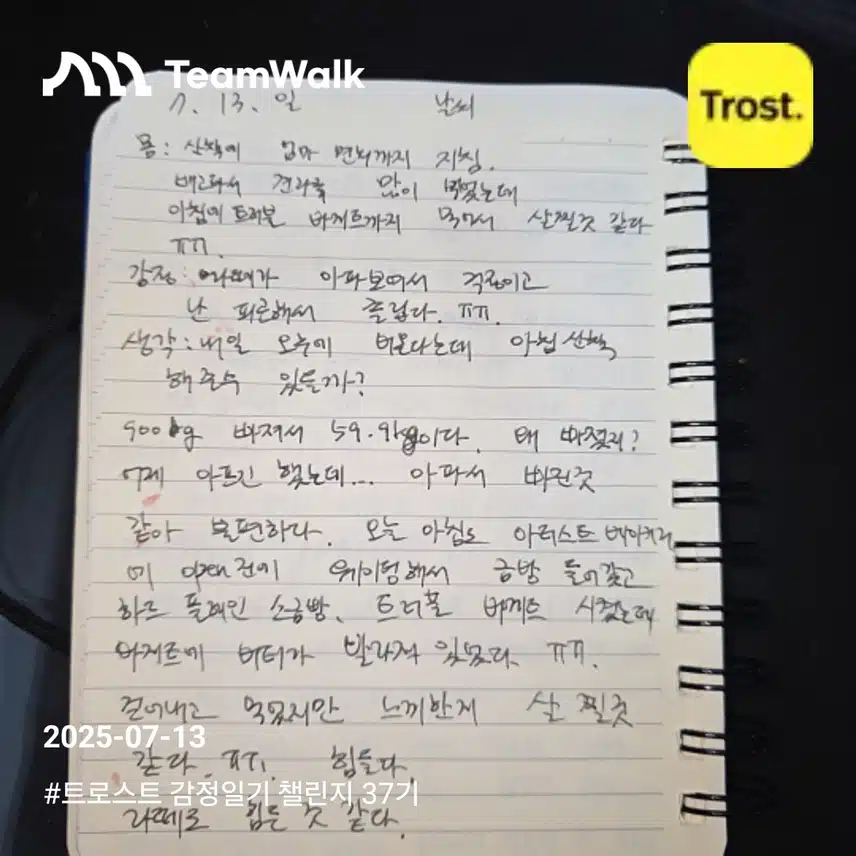 TeamWalk
Trost.
7. 13. 일 날씨
몸: 산책에 엄마 면회까지 지침.
배고파서 견과를 많이 먹었는데
아침에 트러플 바게트까지 먹어서 살찔것 같다
ㅠㅠ.
감정: 라떼가 아파보여서 걱정이고
난 피곤해서 졸립다. ㅠㅠ.
생각: 내일 오후에 비온다는데 아침 산책
해줄수 있을까?
900kg 빠져서 59.9kg이다. 왜 빠졌지?
어제 아프긴 했는데... 아파서 빠진것
같아 불편하다. 오늘 아침도 아티스트 베이커리
에 open전에 웨이팅해서 금방 들어갔고
하드 플레인 소금빵, 트러플 바게트 시켰는데
바게트에 버터가 발라져 있었다. ㅠㅠ.
걷어내고 먹었지만 느끼한게 살 찔것
같다. ㅠㅠ. 힘들다.
라떼도 힘든 것 같다.
2025-07-13
#트로스트 감정일기 챌린지 37기